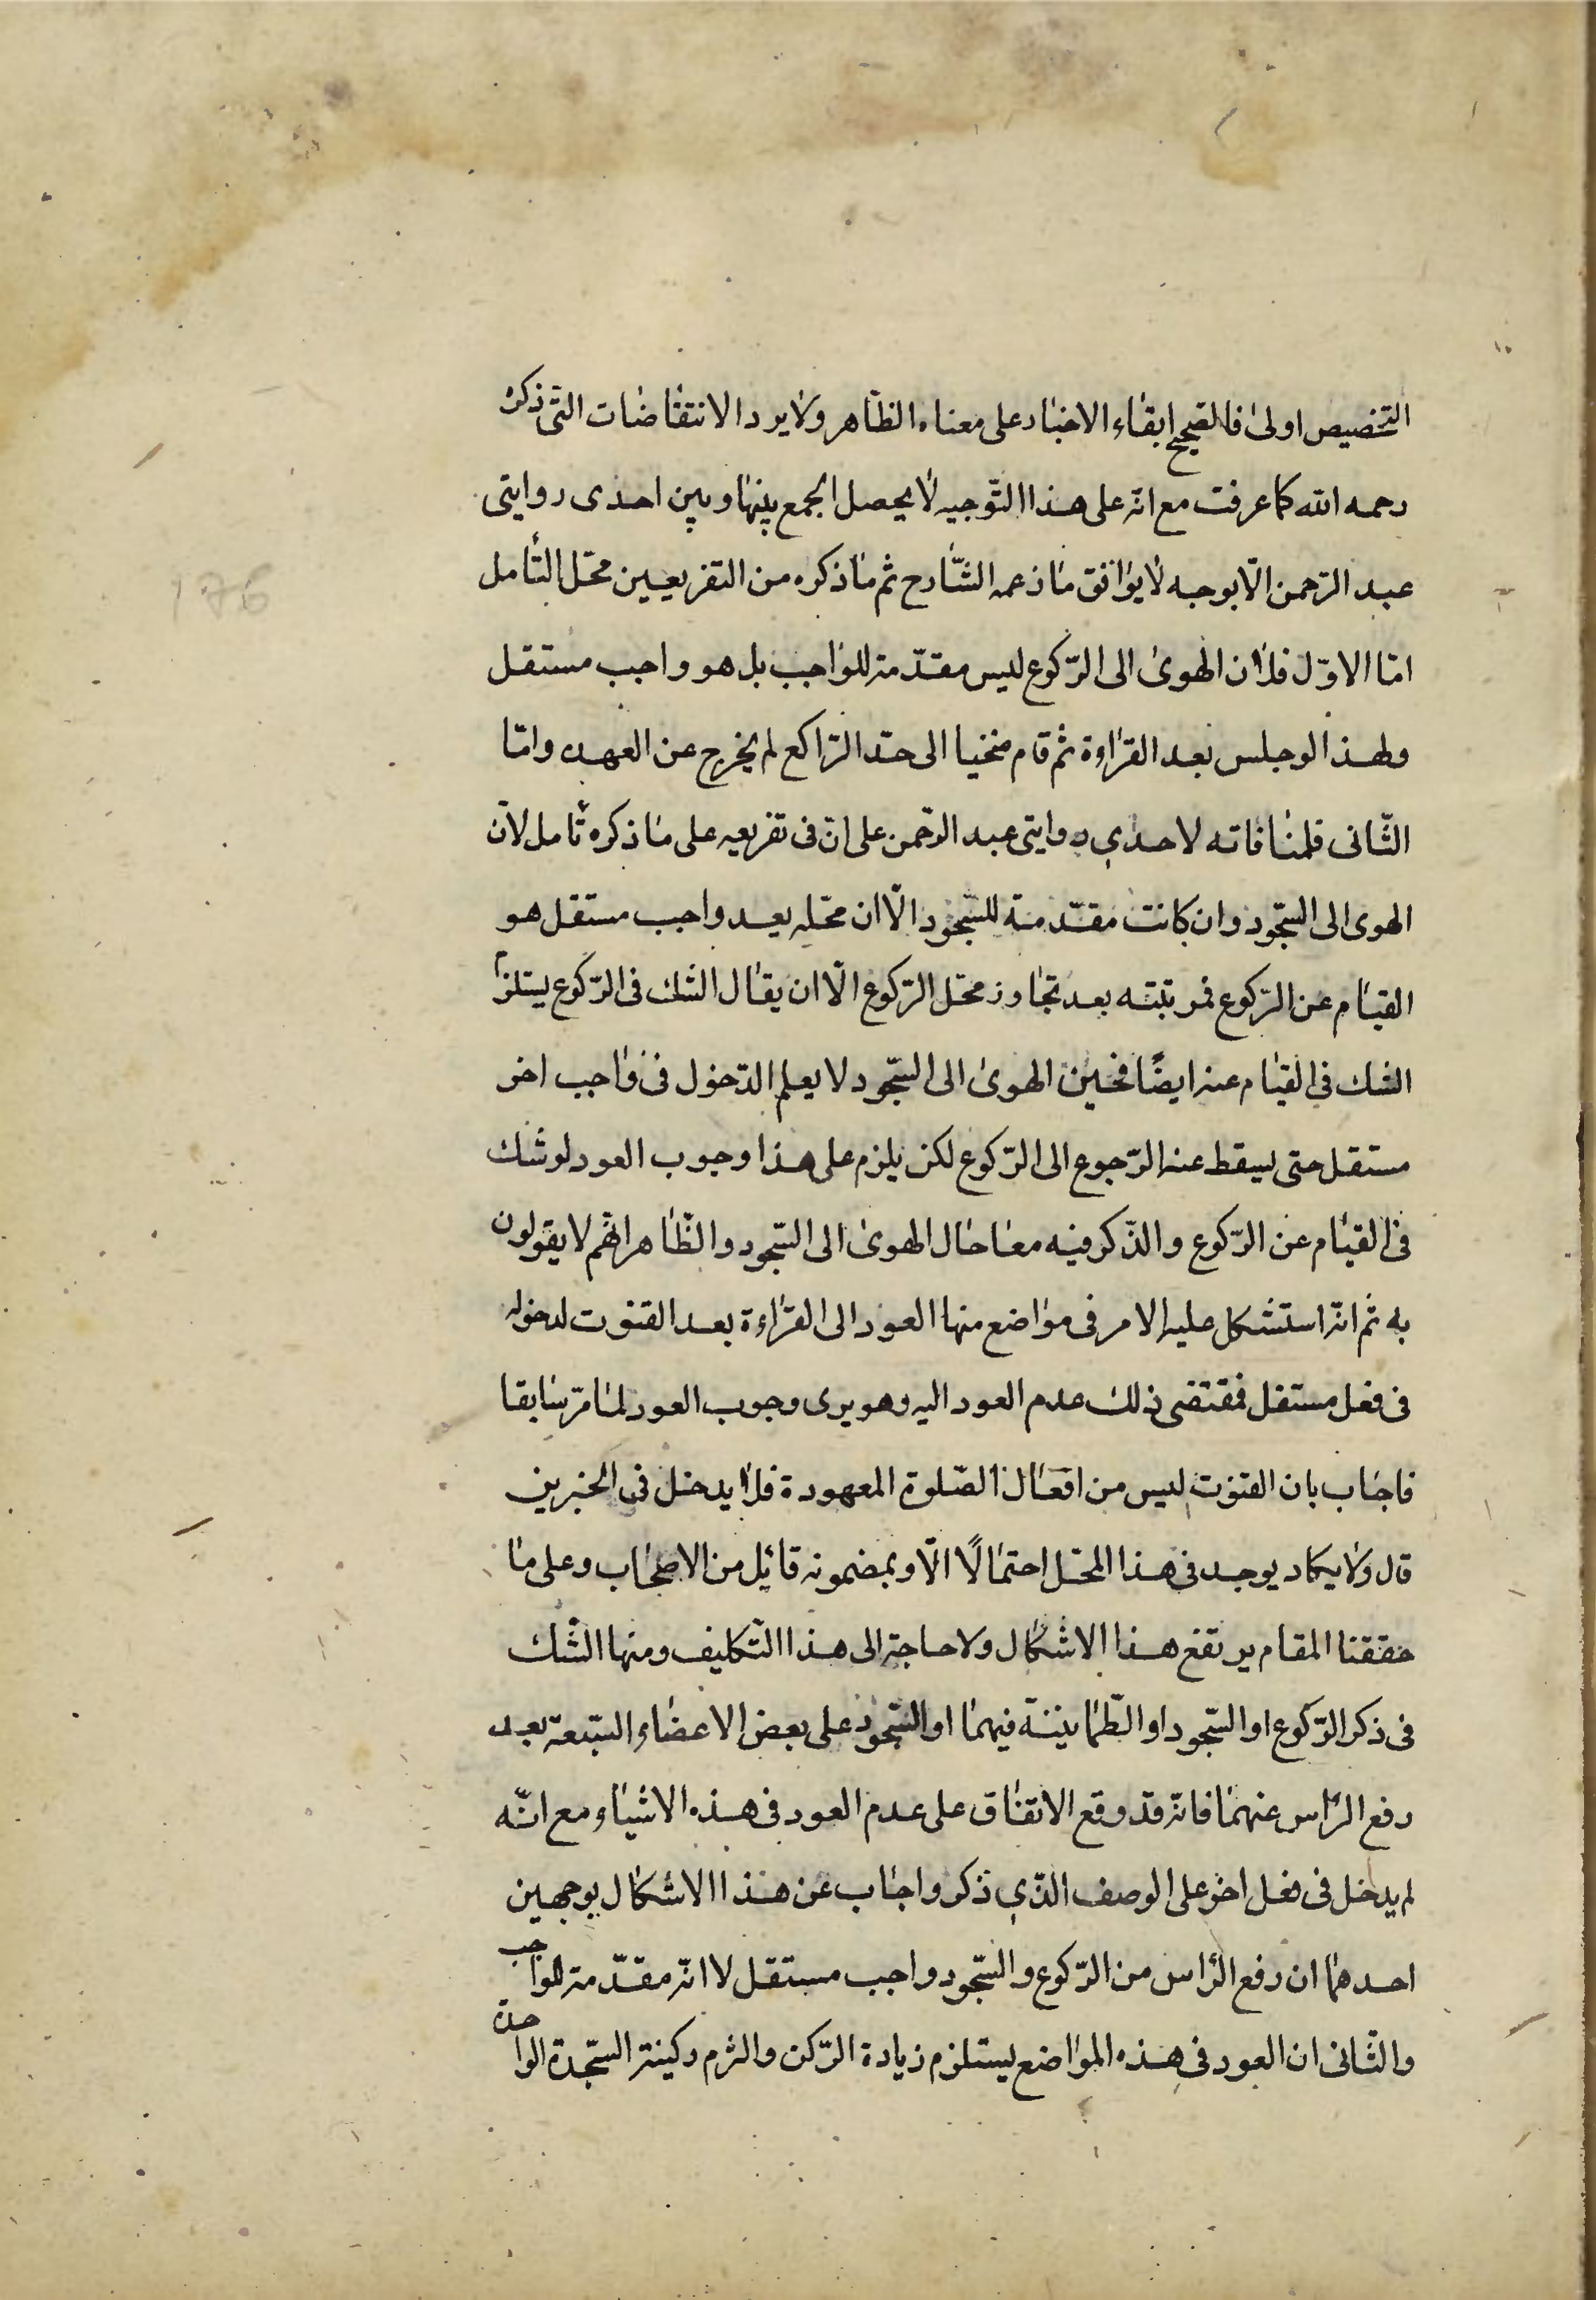 التخصيص اولى فالصحيح ابقاء الاخبار على معناه الظاهر ولا يرد الانتقاضات التى ذكره
رحمه الله كما عرفت مع انه على هذا التوجيه لا يحصل الجمع بينها وبين احدى روايتى
عبد الرحمن الا بوجه لا يوافق ما زعمه الشارح ثم ما ذكره من التفريعين محل التأمل
اما الاول فلان الهوى الى الركوع ليس مقدمة للواجب بل هو واجب مستقل
ولهذا لو جلس بعد القراءة ثم قام منحنيا الى حد الراكع لم يخرج عن العهده واما
الثانى فلمنافاته لاحدى روايتى عبد الرحمن على ان فى تفريعه على ما ذكره تأمل لان
الهوى الى السجود وان كانت مقدمة للسجود الا ان محله بعد واجب مستقل هو
القيام عن الركوع فمرتبته بعد تجاوز محل الركوع الا ان يقال الشك فى الركوع يستلزم
الشك فى القيام عنه ايضًا فحين الهوى الى السجود لا يعلم الدخول فى واجب اخر
مستقل حتى يسقط عنه الرجوع الى الركوع لكن يلزم على هذا وجوب العود لو شك
فى القيام عن الركوع والذكر فيه معا حال الهوى الى السجود والظاهر انهم لا يقولون
به ثم انه استشكل عليه الامر فى مواضع منها العود الى القراءة بعد القنوت لدخوله
فى فعل مستقل فمقتضى ذلك عدم العود اليه وهو يرى وجوب العود لما مر سابقا
فاجاب بان القنوت ليس من افعال الصلوة المعهودة فلا يدخل فى الخبرين
قال ولا يكاد يوجد فى هذا المحل احتمالًا الا وبمضمونه قائل من الاصحاب وعلى ما
حققنا المقام يرتفع هذا الاشكال ولا حاجة الى هذا التكليف ومنها الشك
فى ذكر الركوع او السجود او الطمانينة فيهما او السجود على بعض الاعضاء السبعة بعد
رفع الراس عنهما فانه قد وقع الاتفاق على عدم العود فى هذه الاشياء مع انه
لم يدخل فى فعل اخر على الوصف الذى ذكر واجاب عن هذا الاشكال بوجهين
احدهما ان رفع الراس من الركوع والسجود واجب مستقل لا انه مقدمة للواجب
والثانى ان العود فى هذه المواضع يستلزم زيادة الركن والتزم ركنية السجدة الواحدة
176